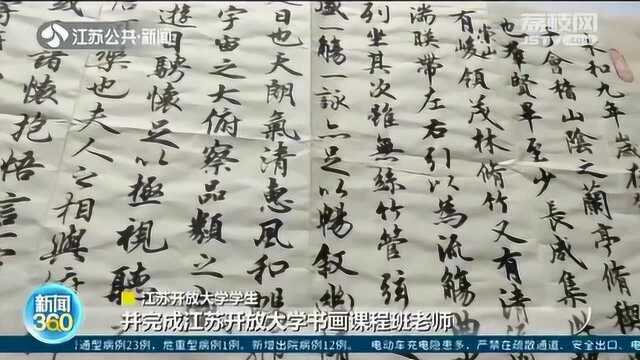 江苏公共·新闻
荔枝网
和九年歲在
會稽山陰之蘭亭脩禊
也羣賢畢至少長咸集此
有崇山峻領茂林脩竹又有清流
湍暎帶左右引以為流觴曲
列坐其次雖無絲竹管弦
盛一觴一詠亦足以暢叙幽
日也天朗氣清惠風和暢
宇宙之大俯察品類之
遊目騁懷足以極視聽
樂也夫人之相與
諸懷抱悟言一
江苏开放大学学生
并完成江苏开放大学书画课程班老师
新闻
360
通型病例23例，危重型病例1例。新增出院病例12例。
电动车充电隐患多，严禁在疏散通道、安全出